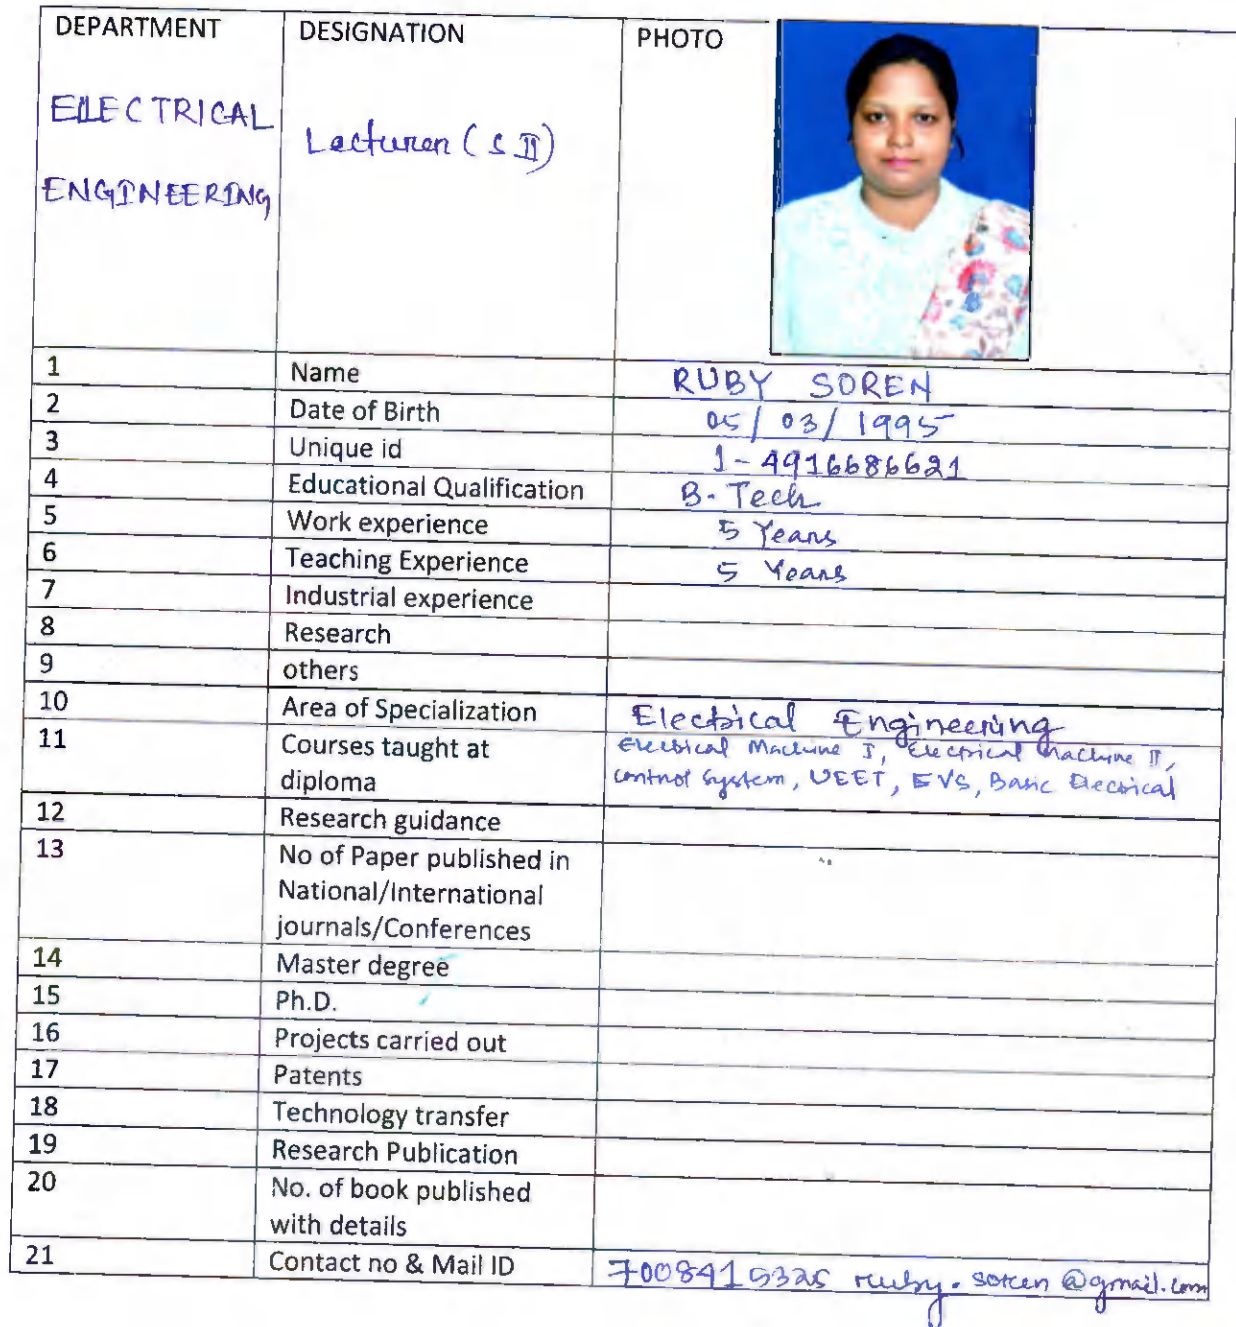 DEPARTMENT DESIGNATION PHOTO
ELECTRICAL
ENGINEERING
Lecturer (S II)
1 Name RUBY SOREN
2 Date of Birth 05/03/1995
3 Unique id 1-4916686621
4 Educational Qualification B.Tech
5 Work experience 5 Years
6 Teaching Experience 5 Years
7 Industrial experience
8 Research
9 others
10 Area of Specialization Electrical Engineering
11 Courses taught at Electrical Machine I, Electrical Machine II,
diploma Control System, UEET, EVS, Basic Electrical
12 Research guidance
13 No of Paper published in
National/International
journals/Conferences
14 Master degree
15 Ph.D.
16 Projects carried out
17 Patents
18 Technology transfer
19 Research Publication
20 No. of book published
with details
21 Contact no & Mail ID 7008415325 ruby.soren@gmail.com